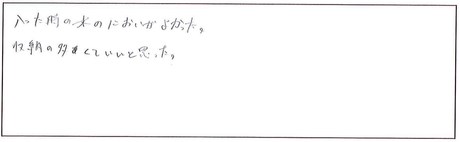 入った所の木のにおいがよかった。
収納の多くていいと思った。